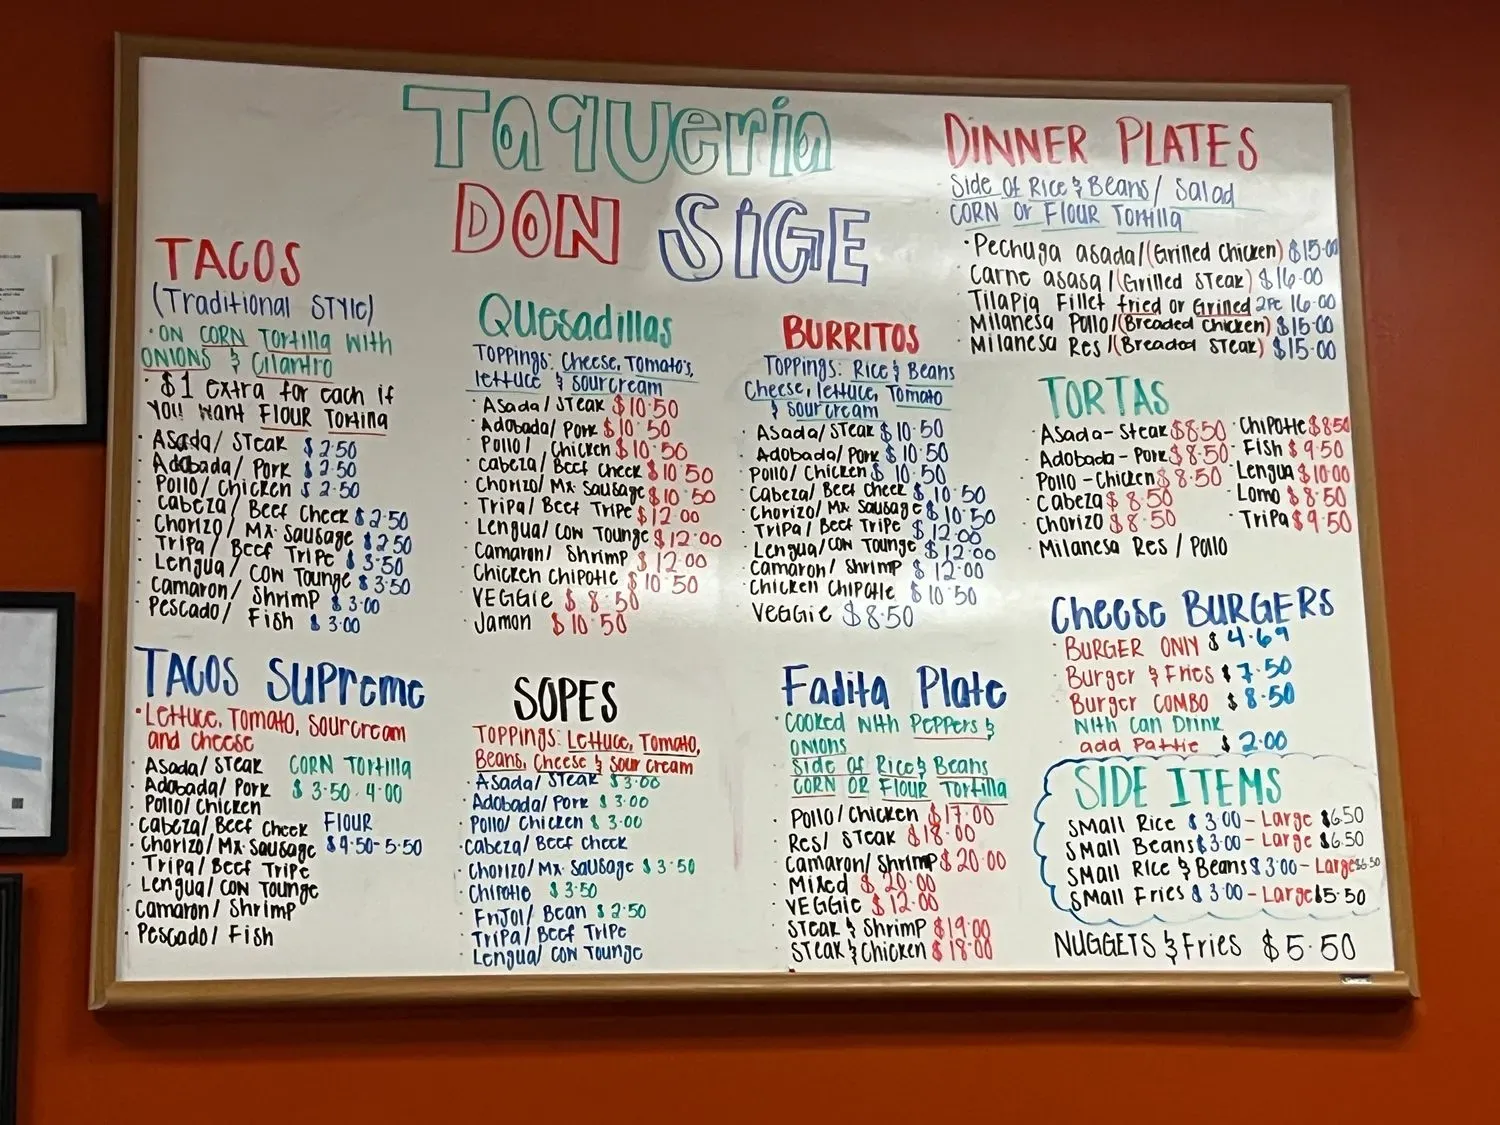 Taqueria
DON SIGE
TACOS
(Traditional STYLE)
· ON CORN Tortilla with
ONIONS & Cilantro
· $1 extra for each if
you want FLOUR Tortilla
· Asada/ STEAK $2.50
· Adobada/ Pork $2.50
· Pollo/ Chicken $2.50
· Cabeza/ Beef Cheek $2.50
· Chorizo/ Mx Sausage $2.50
· Tripa/ Beef Tripe $3.50
· Lengua/ Cow Tounge $3.50
· Camaron/ Shrimp $3.00
· Pescado/ Fish $3.00
TACOS Supreme
· Lettuce, Tomato, Sourcream
and cheese
· Asada/ STEAK CORN TorTilla
· Adobada/ Pork $3.50-4.00
· Pollo/ Chicken
· Cabeza/ Beef Cheek FLOUR
· Chorizo/ Mx Sausage $4.50-5.50
· Tripa/ Beef Tripe
· Lengua/ Cow Tounge
· Camaron/ Shrimp
· Pescado/ Fish
Quesadillas
TOPPINGS: Cheese, Tomato's,
lettuce & sourcream
· Asada/ STEAK $10.50
· Adobada/ Pork $10.50
· Pollo/ Chicken $10.50
· Cabeza/ Beef Cheek $10.50
· Chorizo/ Mx Sausage $10.50
· Tripa/ Beef Tripe $12.00
· Lengua/ Cow Tounge $12.00
· Camaron/ Shrimp $12.00
· Chicken Chipotle $10.50
· VEGGie $8.50
· Jamon $10.50
SOPES
TOPPINGS: Lettuce, Tomato,
Beans, Cheese & Sour cream
· Asada/ Steak $3.00
· Adobada/ Pork $3.00
· Pollo/ Chicken $3.00
· Cabeza/ Beef Cheek
· Chorizo/ Mx Sausage $3.50
· Chipotle $3.50
· Frijol/ Bean $2.50
· Tripa/ Beef Tripe
· Lengua/ Cow Tounge
BURRITOS
TOPPINGS: Rice & Beans
Cheese, lettuce, Tomato
& sour cream
· Asada/ Steak $10.50
· Adobada/ Pork $10.50
· Pollo/ Chicken $10.50
· Cabeza/ Beef Cheek $10.50
· Chorizo/ Mx Sausage $10.50
· Tripa/ Beef Tripe $12.00
· Lengua/ Cow Tounge $12.00
· Camaron/ Shrimp $12.00
· Chicken Chipotle $10.50
· Veggie $8.50
Fadita Plate
· Cooked with Peppers &
onions
Side of Rice & Beans
CORN OR FLOUR Tortilla
· Pollo/ Chicken $17.00
· Res/ STEAK $18.00
· Camaron/ Shrimp $20.00
· Mixed $20.00
· VEGGIE $12.00
· Steak & Shrimp $19.00
· Steak & Chicken $18.00
DINNER PLATES
· Side of Rice & Beans/ Salad
· CORN or FLOUR Tortilla
· Pechuga asada/(Grilled Chicken) $15.00
· Carne asasa/(Grilled Steak) $16.00
· Tilapia Fillet fried or Grilled 2pc 16.00
· Milanesa Pollo/(Breaded Chicken) $15.00
· Milanesa Res/(Breaded Steak) $15.00
TORTAS
· Asada-Steak $8.50
· Adobada-Pork $8.50
· Pollo-Chicken $8.50
· Cabeza $8.50
· Chorizo $8.50
· Milanesa Res / Pollo
· Chipotle $8.50
· Fish $9.50
· Lengua $10.00
· Lomo $8.50
· Tripa $9.50
Cheese BURGERS
· BURGER ONLY $4.69
· Burger & Fries $7.50
· Burger COMBO $8.50
with can Drink
· add Pattie $2.00
SIDE ITEMS
· SMall Rice $3.00 - Large $6.50
· SMall Beans $3.00 - Large $6.50
· SMall Rice & Beans $3.00 - Large $6.50
· SMall Fries $3.00 - Large $5.50
NUGGETS & Fries $5.50